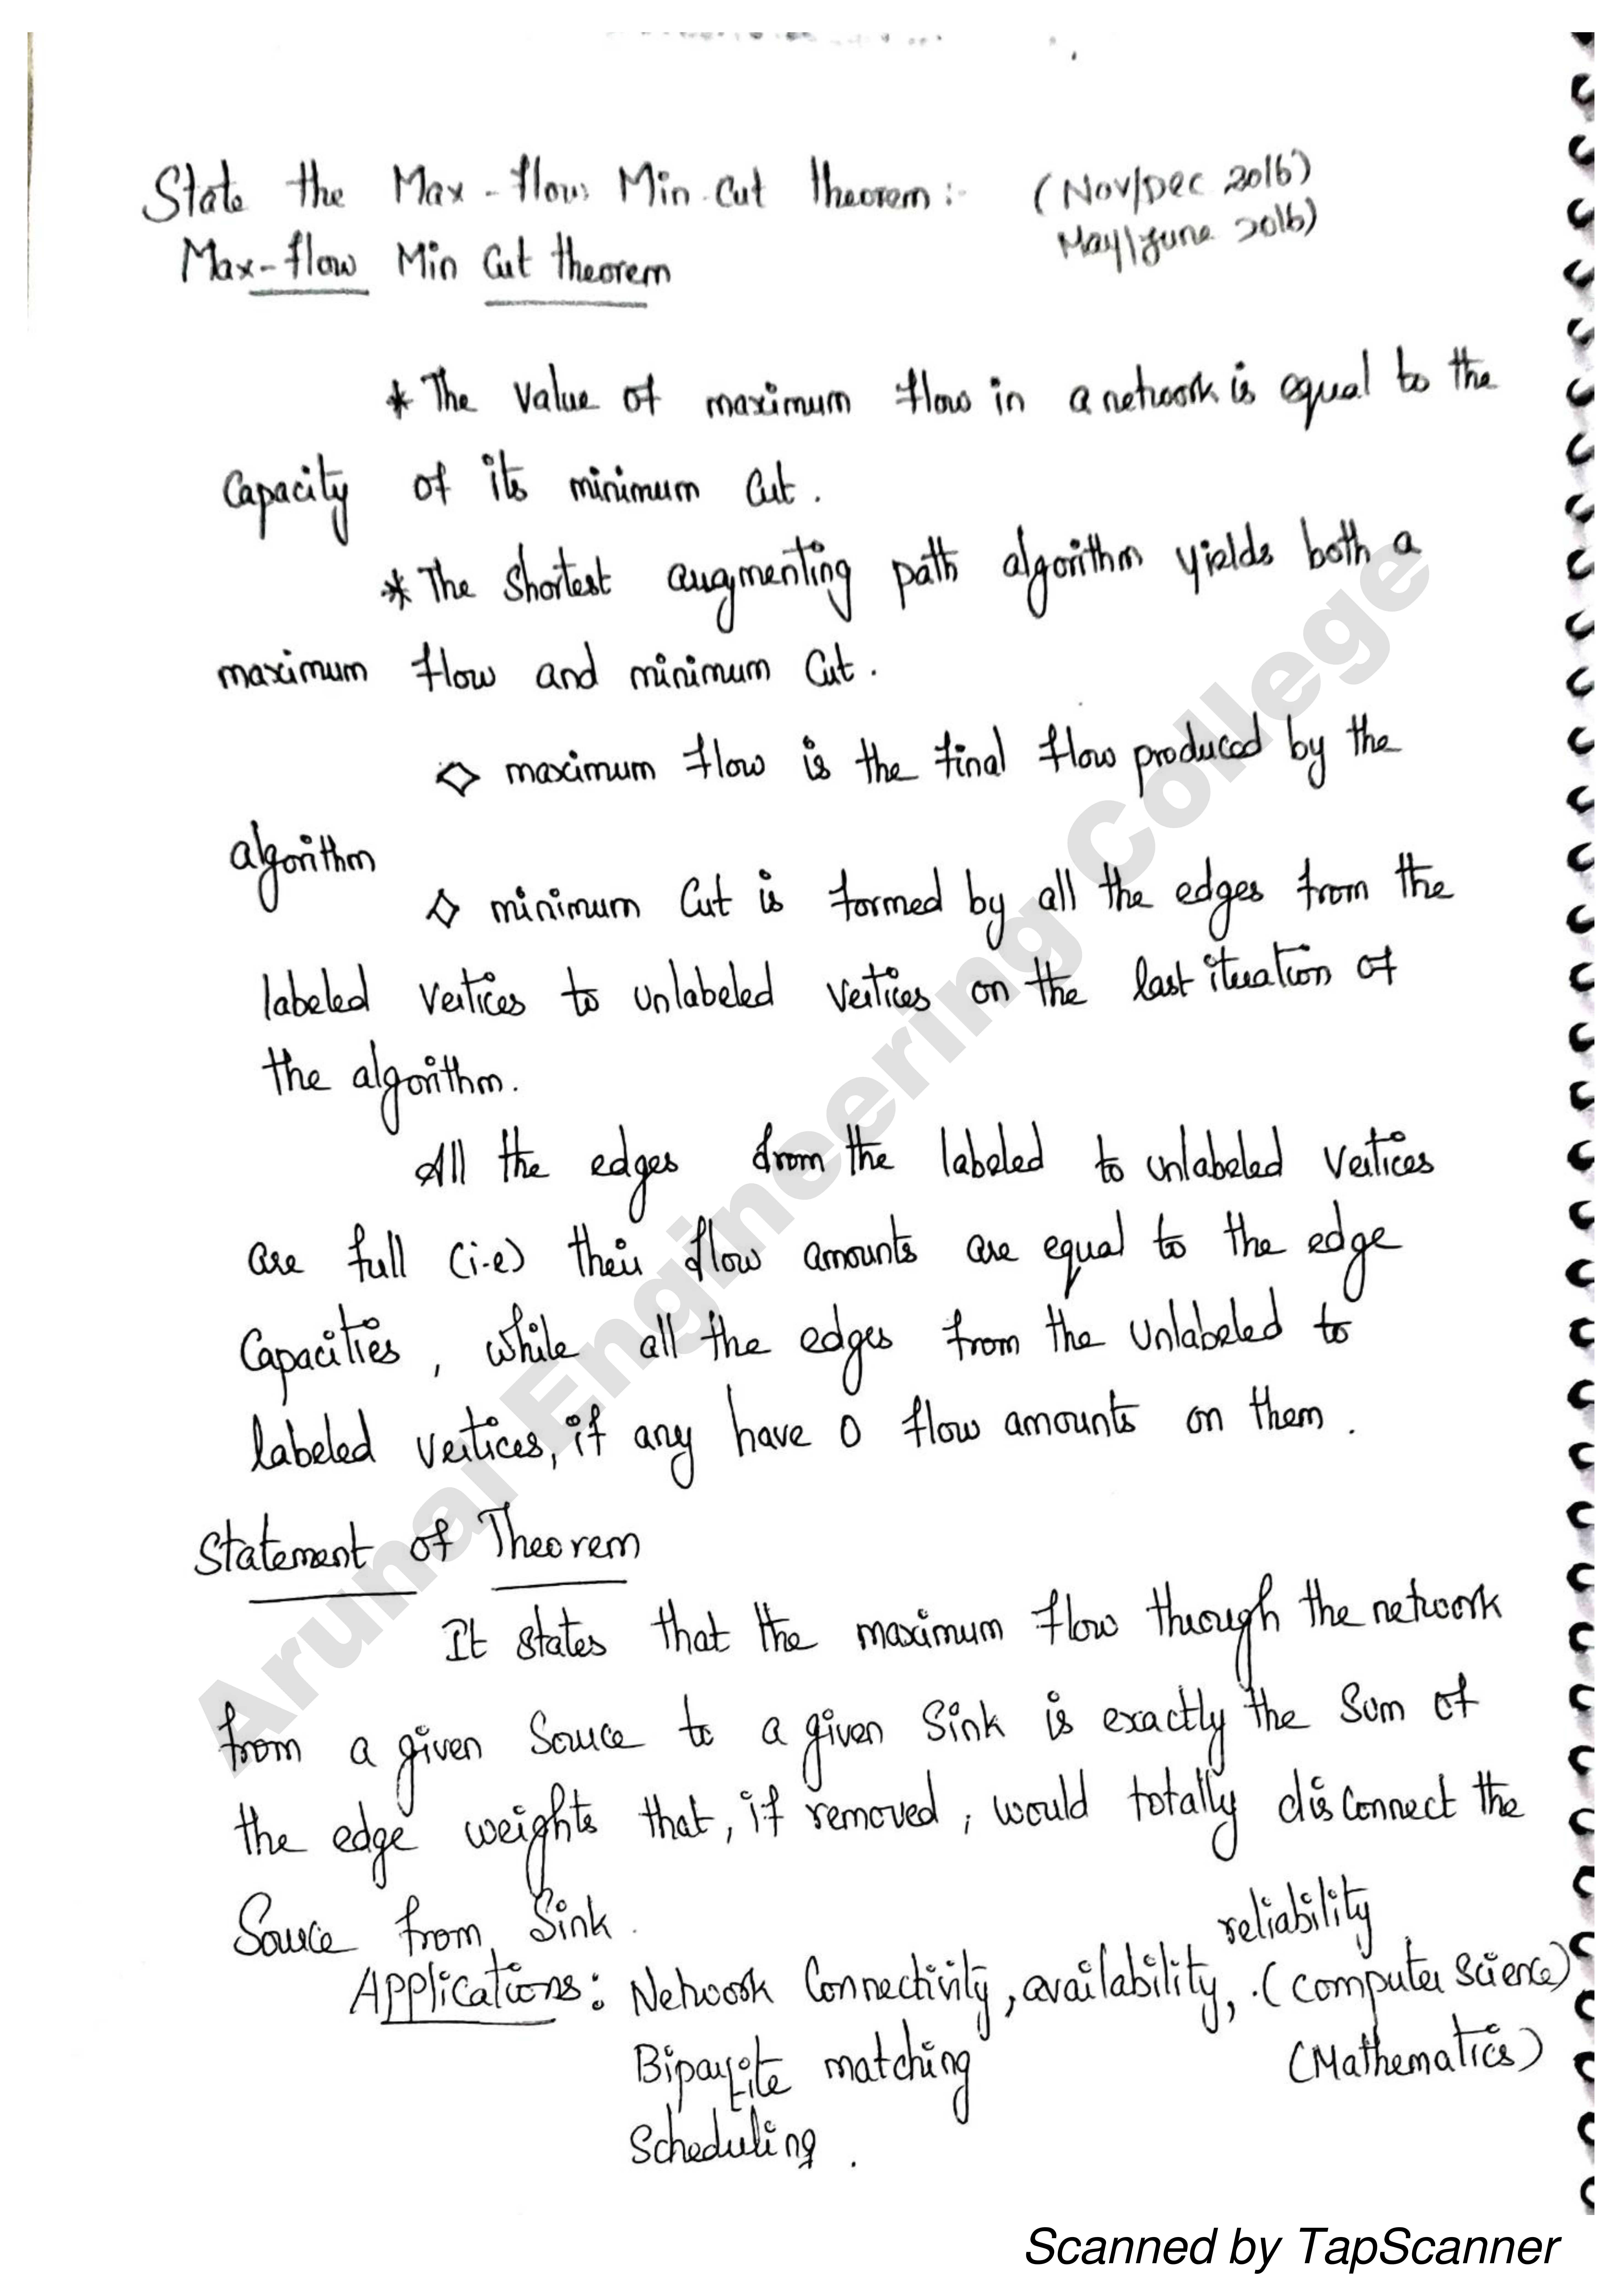 State the Max-flow Min-Cut theorem:- (Nov/Dec 2016)
May/June 2016)
Max-flow Min Cut theorem
* The Value of maximum flow in a network is equal to the
Capacity of its minimum Cut.
* The Shortest augmenting path algorithm yields both a
maximum flow and minimum Cut.
◇ maximum flow is the final flow produced by the
algorithm
◇ minimum Cut is formed by all the edges from the
labeled vertices to unlabeled vertices on the last iteration of
the algorithm.
All the edges from the labeled to unlabeled vertices
are full (i.e) their flow amounts are equal to the edge
Capacities, while all the edges from the unlabeled to
labeled vertices, if any have 0 flow amounts on them.
Statement of Theorem
It states that the maximum flow through the network
from a given Source to a given Sink is exactly the Sum of
the edge weights that, if removed, would totally disconnect the
Source from Sink.
reliability
Applications: Network Connectivity, availability, .(Computer Science)
Bipartite matching (Mathematics)
Scheduling.
Arunai Engineering College
Scanned by TapScanner